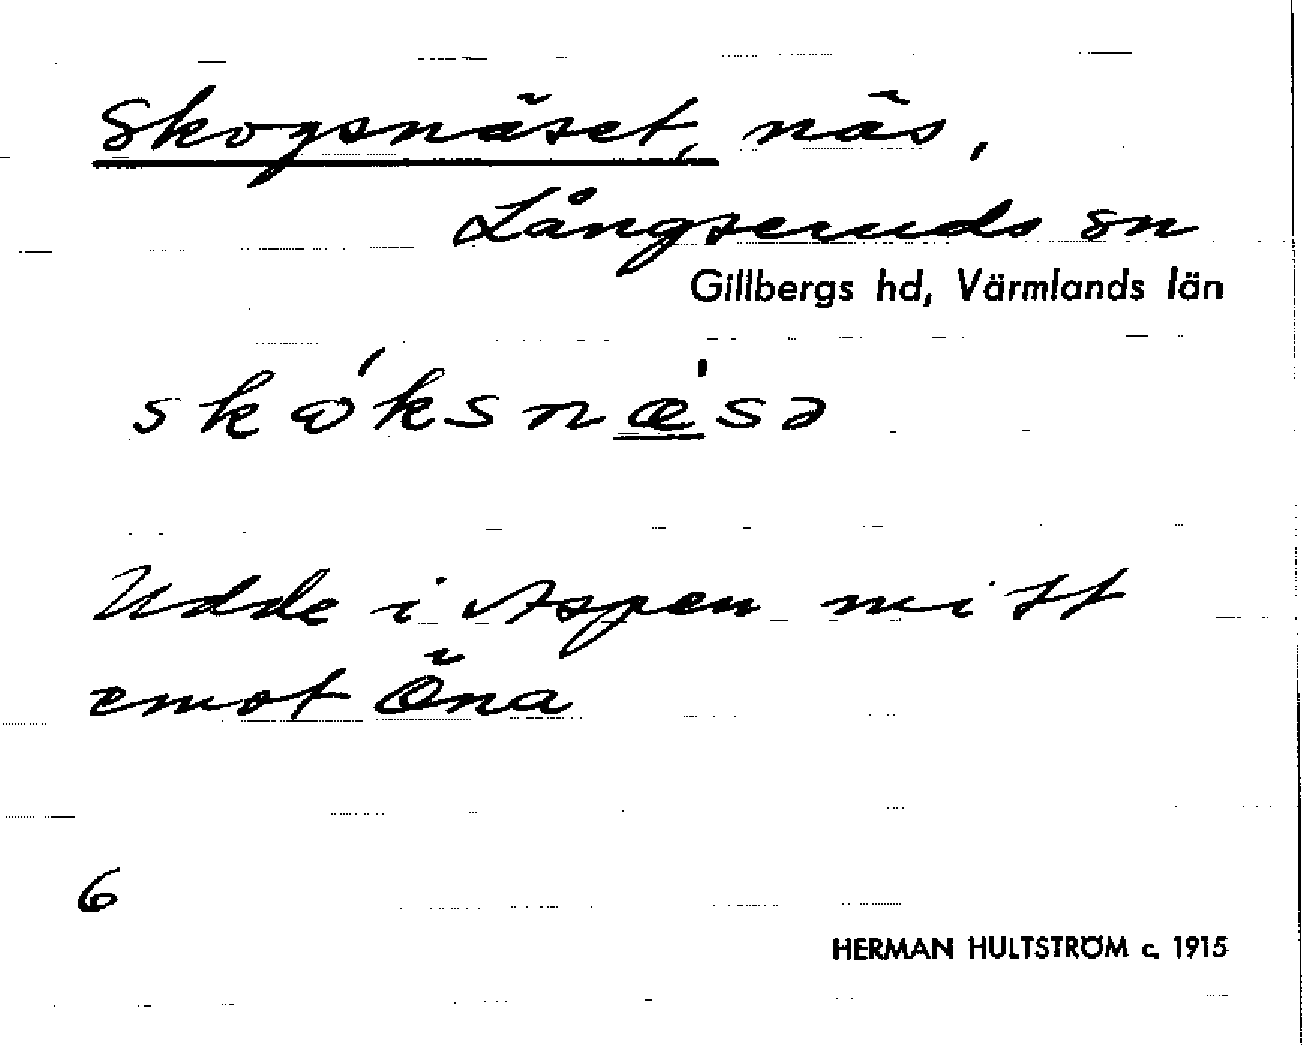 Skogsnäset, näs,
Långseruds sn
Gillbergs hd, Värmlands län
skóksnæ̲̀sə
Udde i Aspen mitt
emot Öna
6
HERMAN HULTSTRÖM c. 1915